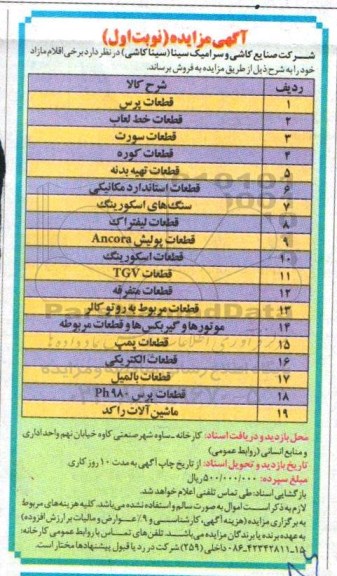 آگهی مزایده (نوبت اول)
شرکت صنایع کاشی و سرامیک سینا (سینا کاشی) در نظر دارد برخی اقلام مازاد
خود را به شرح ذیل از طریق مزایده به فروش برساند.
ردیف شرح کالا
۱ قطعات پرس
۲ قطعات خط لعاب
۳ قطعات سورت
۴ قطعات کوره
۵ قطعات تهیه بدنه
۶ قطعات استاندارد مکانیکی
۷ سنگ‌های اسکورینگ
۸ قطعات لیفتراک
۹ قطعات پولیش Ancora
۱۰ قطعات اسکورینگ
۱۱ قطعات TGV
۱۲ قطعات متفرقه
۱۳ قطعات مربوط به روتوکالر
۱۴ موتورها و گیربکس‌ها و قطعات مربوطه
۱۵ قطعات پمپ
۱۶ قطعات الکتریکی
۱۷ قطعات بالمیل
۱۸ قطعات پرس Ph ۹۸۰
۱۹ ماشین آلات راکد
محل بازدید و دریافت اسناد: کارخانه ـ ساوه شهر صنعتی کاوه خیابان نهم واحد اداری
و منابع انسانی (روابط عمومی)
تاریخ بازدید و تحویل اسناد: از تاریخ چاپ آگهی به مدت ۱۰ روز کاری
مبلغ سپرده: ۵۰۰/۰۰۰/۰۰۰ ریال
بازگشایی اسناد: طی تماس تلفنی اعلام خواهد شد.
لازم به ذکر است اموال به صورت سالم و استفاده نشده می‌باشد. کلیه هزینه‌های مربوط
به برگزاری مزایده (هزینه آگهی، کارشناسی و ۹٪ عوارض و مالیات بر ارزش افزوده)
به عهده برنده یا برندگان مزایده می‌باشد. تلفن‌های تماس با روابط عمومی کارخانه:
۱۵-۴۲۳۴۲۸۱۱-۰۸۶ داخلی (۲۵۹) شرکت در رد یا قبول پیشنهادها مختار است.